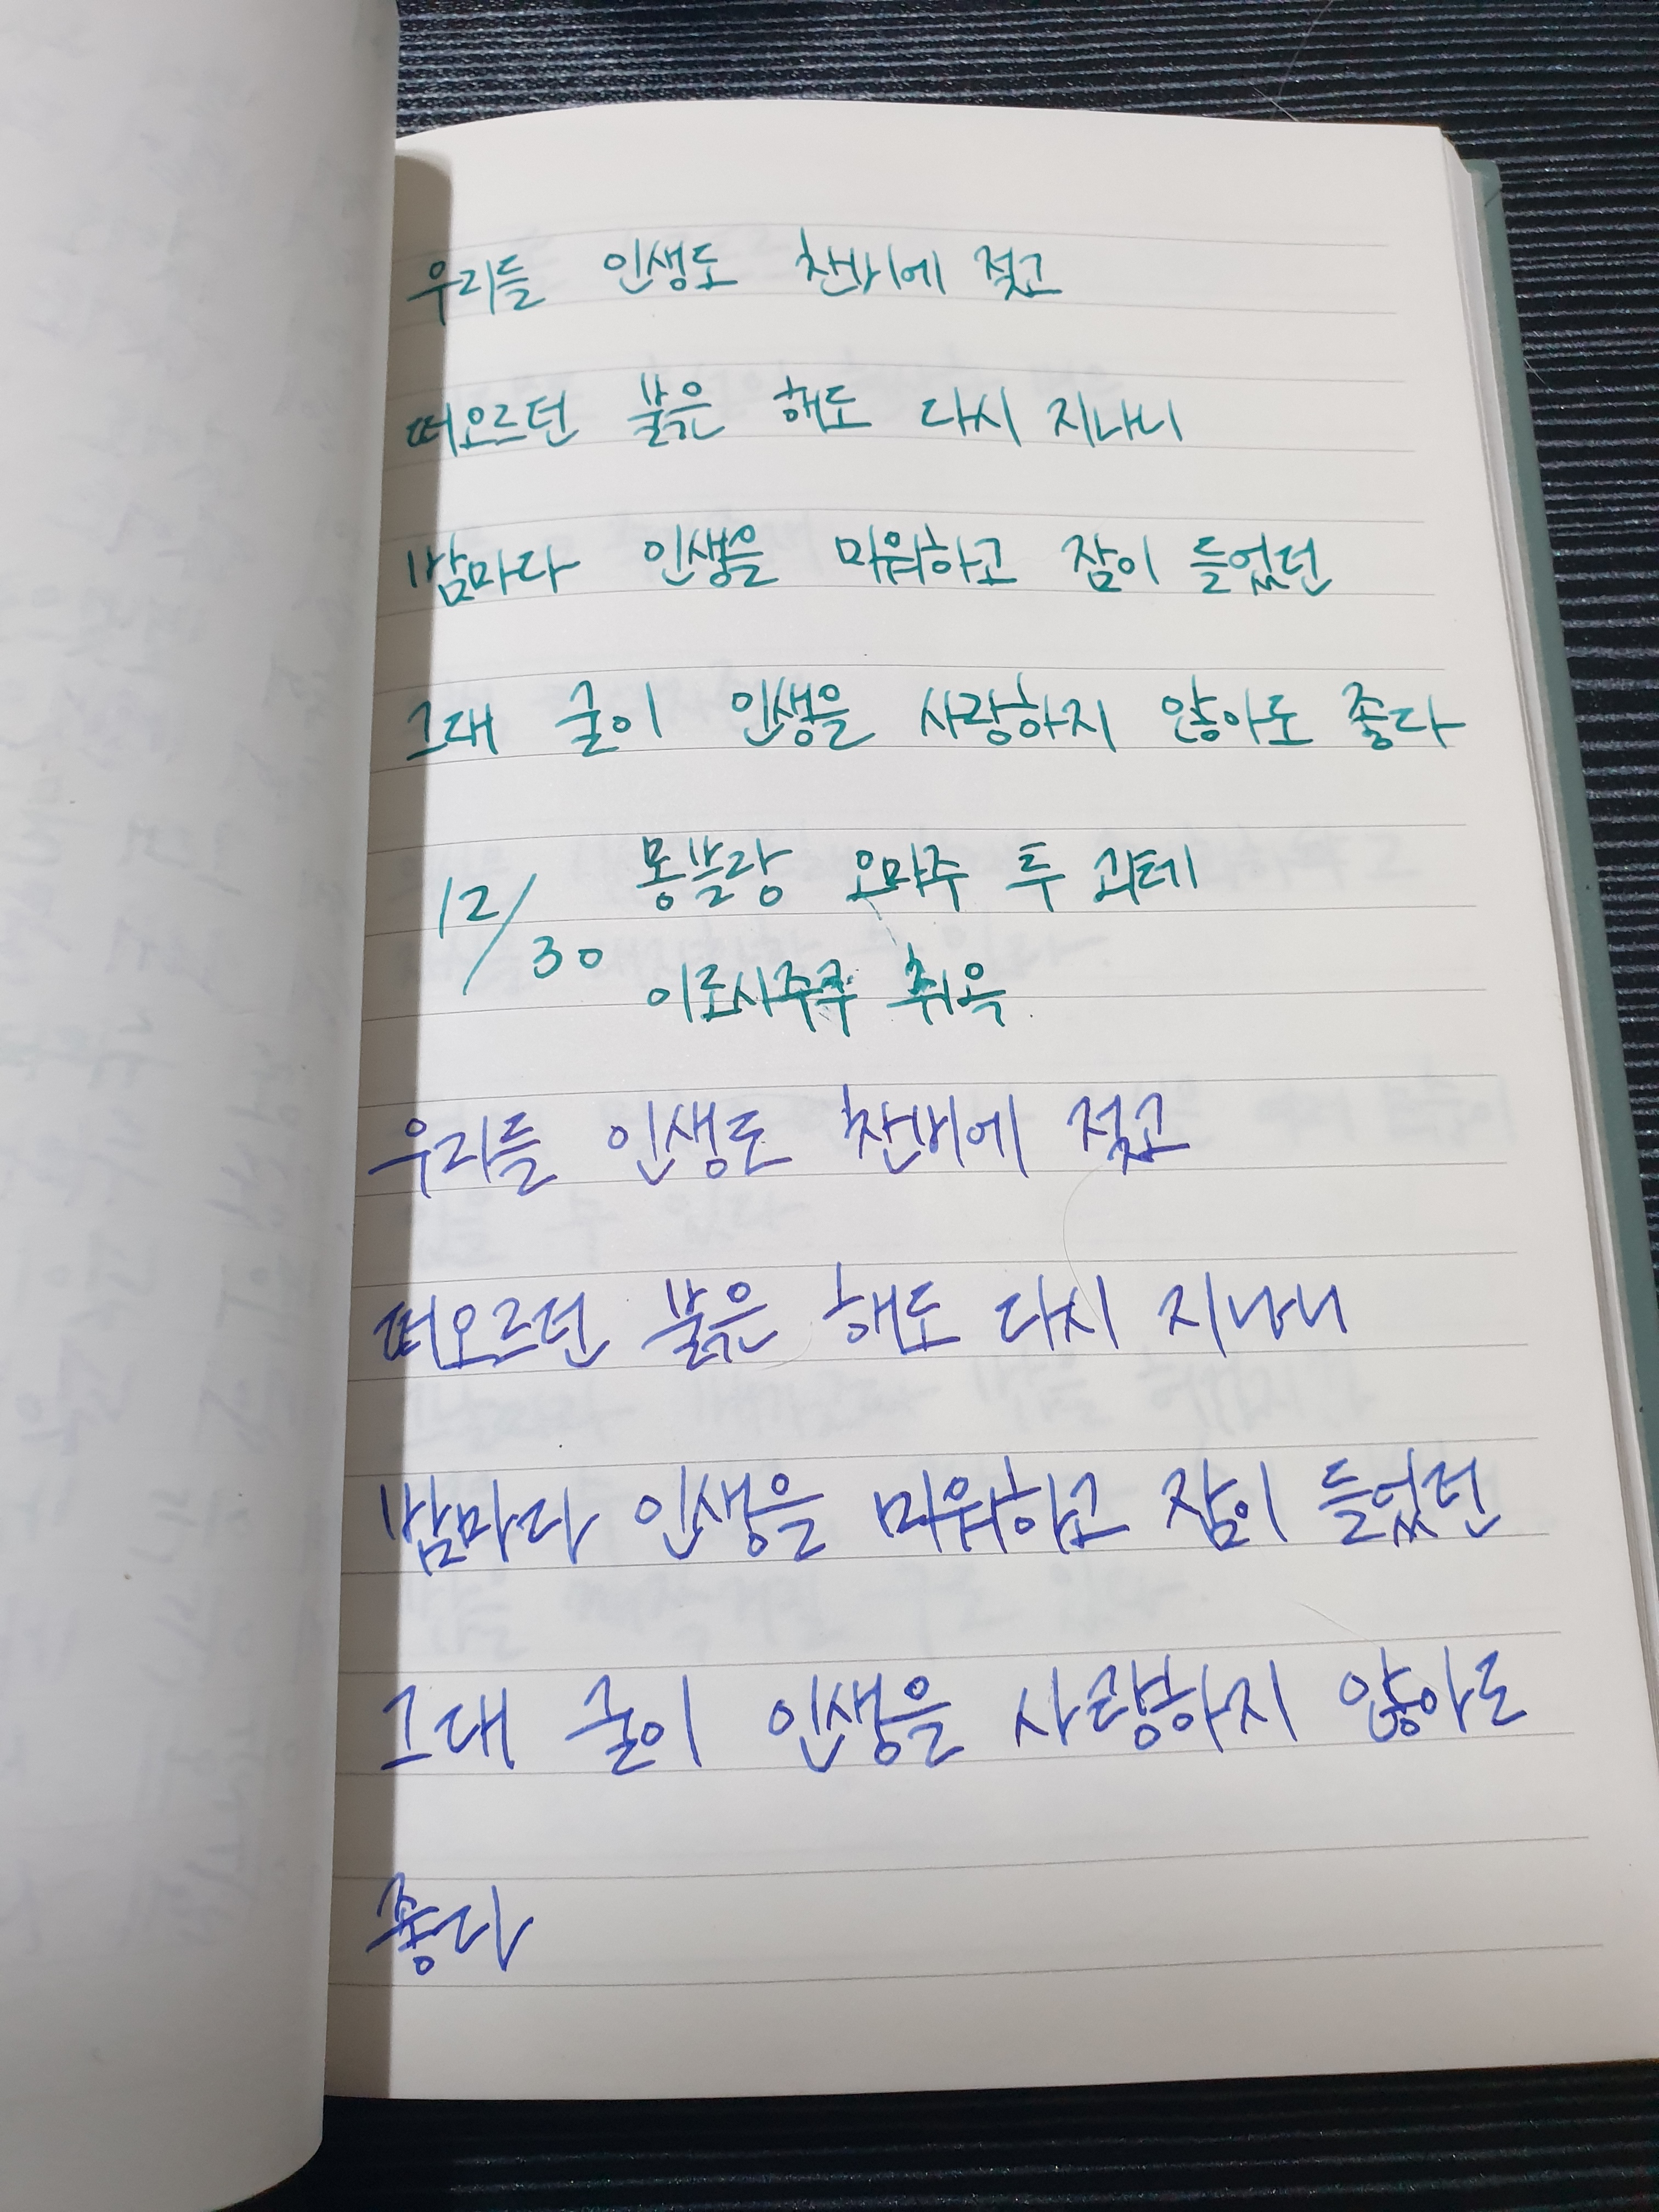 우리들 인생도 찬비에 젖고
떠오르던 붉은 해도 다시 지나니
밤마다 인생을 미워하고 잠이 들었던
그대 굳이 인생을 사랑하지 않아도 좋다
12/30 몽블랑 오마주 투 괴테
이로시주쿠 취옥
우리들 인생도 찬비에 젖고
떠오르던 붉은 해도 다시 지나니
밤마다 인생을 미워하고 잠이 들었던
그대 굳이 인생을 사랑하지 않아도
좋다